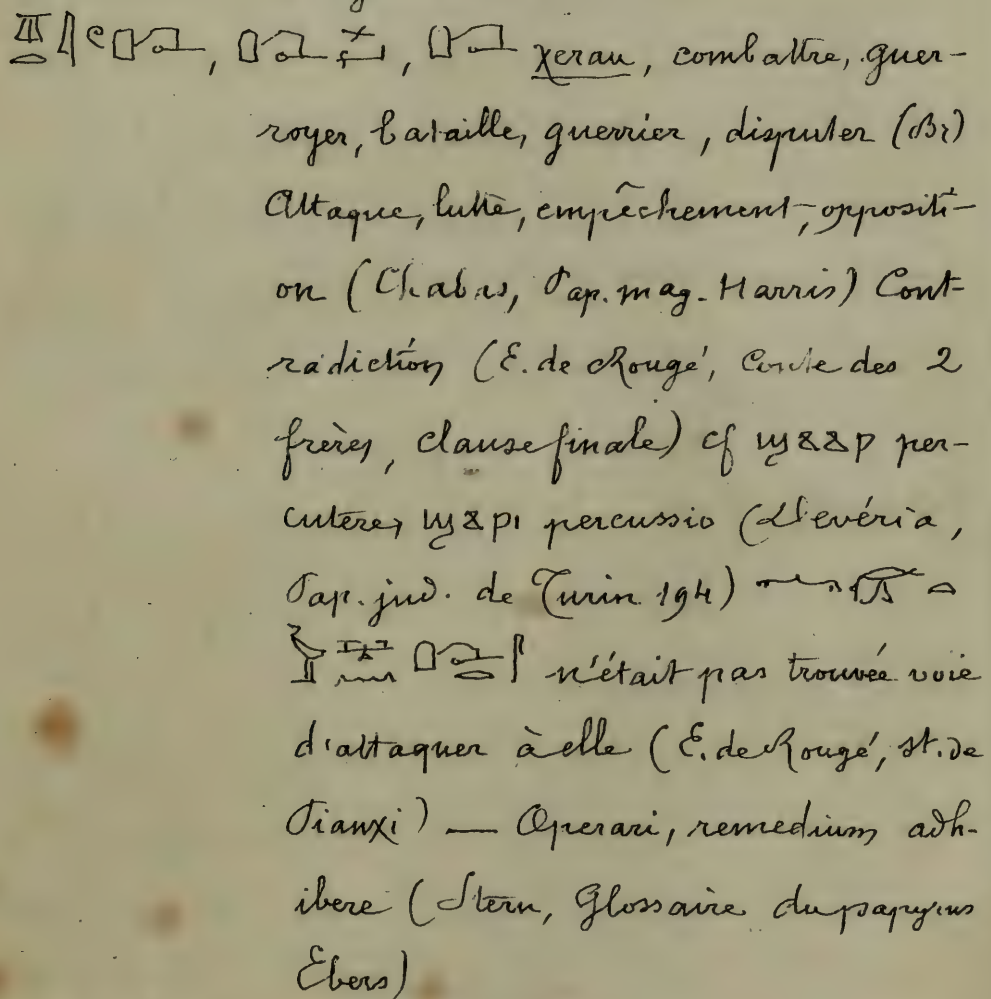 , , χerau, combattre, guer-
royer, bataille, guerrier, disputer (Br)
Attaque, lutte, empêchement, oppositi-
on (Chabas, Pap. mag. Harris) Cont-
radiction (E. de Rougé, Conte des 2
frères, clause finale) cf ϣⲁⲁⲣ per-
cutere, ϣⲁⲣⲓ percussio (Devéria,
Pap. jud. de Turin 194)
n'était pas trouvée voie
d'attaquer à elle (E. de Rougé, st. de
Pianχi) — Operari, remedium adh-
ibere (Stern, Glossaire du papyrus
Ebers)